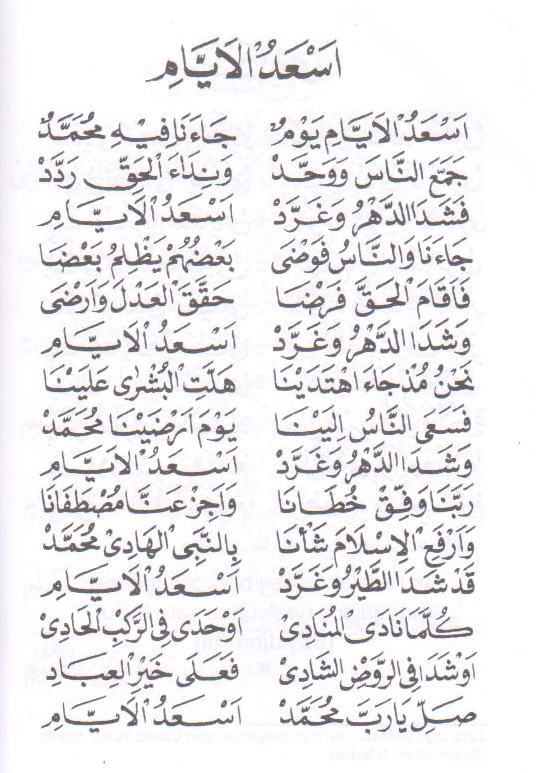 اَسْعَدُ الْاَيَّامِ
اَسْعَدُ الْاَيَّامِ يَوْمٌ جَاءَنَا فِيْهِ مُحَمَّدْ
جَمَعَ النَّاسَ وَوَحَّدْ وَنِدَاءَ الْحَقِّ رَدَّدْ
فَشَدَا الدَّهْرُ وَغَرَّدْ اَسْعَدُ الْاَيَّامِ
جَاءَنَا وَالنَّاسُ فَوْضَى بَعْضُهُمْ يَظْلِمُ بَعْضَا
فَاَقَامَ الْحَقَّ فَرْضَا حَقَّقَ الْعَدْلَ وَاَرْضَى
وَشَدَا الدَّهْرُ وَغَرَّدْ اَسْعَدُ الْاَيَّامِ
نَحْنُ مُذْ جَاءَ اهْتَدَيْنَا هَلَّتِ الْبُشْرٰى عَلَيْنَا
فَسَعَى النَّاسُ اِلَيْنَا يَوْمَ اَرْضَيْنَا مُحَمَّدْ
وَشَدَا الدَّهْرُ وَغَرَّدْ اَسْعَدُ الْاَيَّامِ
رَبَّنَا وَفِّقْ خُطَانَا وَاجْزِ عَنَّا مُصْطَفَانَا
وَارْفَعِ الْاِسْلَامَ شَأْنَا بِالنَّبِى الْهَادِىْ مُحَمَّدْ
قَدْ شَدَا الطَّيْرُ وَغَرَّدْ اَسْعَدُ الْاَيَّامِ
كُلَّمَا نَادَى الْمُنَادِىْ اَوْ حَدَى فِى الرَّكْبِ الْحَادِىْ
اَوْ شَدَا فِى الرَّوْضِ الشَّادِىْ فَعَلَى خَيْرِ الْعِبَادِ
صَلِّ يَا رَبِّ مُحَمَّدْ اَسْعَدُ الْاَيَّامِ